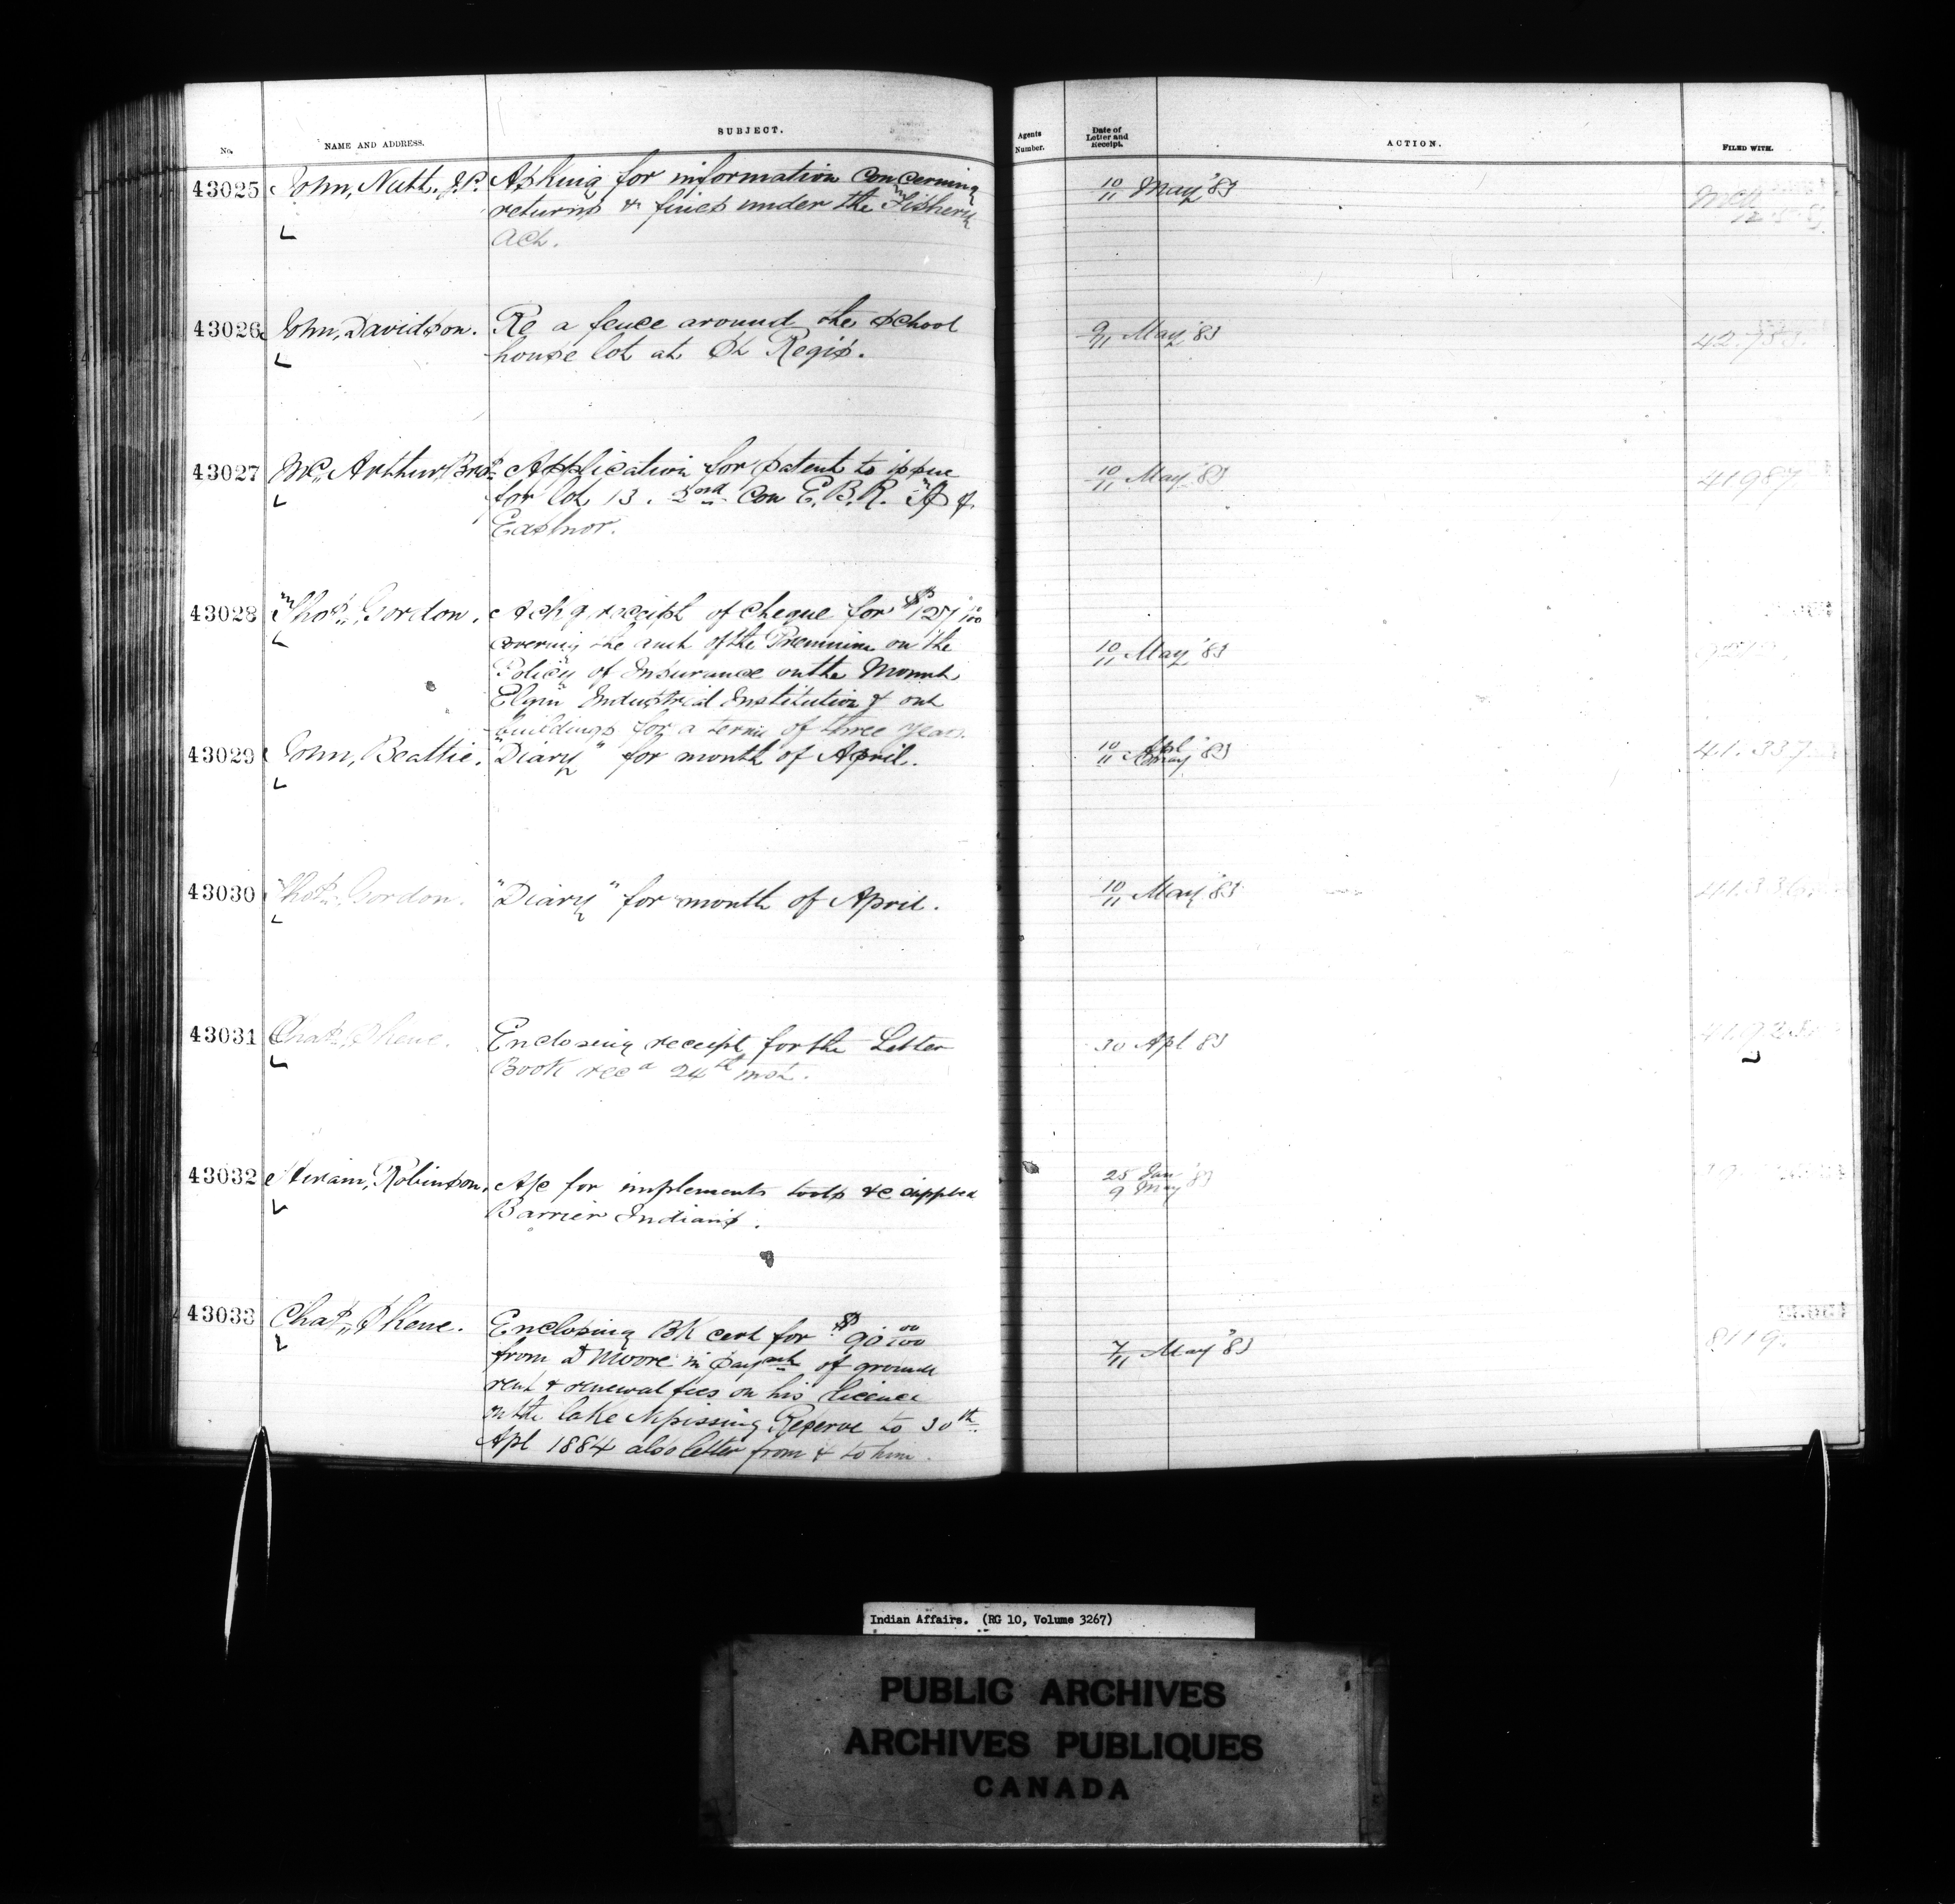 No.
NAME AND ADDRESS.
SUBJECT.
Agents Number.
Date of Letter and Receipt.
ACTION.
FILED WITH.
43025 John, Nutt. J.P. Asking for information concerning 10/11 May '83
returns & fines under the Fishery
Act.
43026 John, Davidson. Re a fence around the school 9/11 May '83
house lot at St Regis.
43027 McArthur Bros Application for patent to issue 10/11 May '83 41987
for lot 13. 3rd Con E.B.R. Tp of
Eastnor.
43028 Thos. Gordon. Ackg receipt of cheque for
covering the amt of the Premium on the 10/11 May '83
Policy of Insurance on the Mount
Elgin Industrial Institution & out
buildings for a term of three years.
43029 John, Beattie. "Diary" for month of April. 10/11 May '83 41.337
43030 Thos. Gordon. "Diary" for month of April. 10/11 May '83
43031 Chas. Skene. Enclosing receipt for the Letter 30 Apl 83
Book recd 24th inst.
43032 Hiram, Robinson. A/c for implements tools &c supplied 25 Jan '83
Barrier Indians. 9 May
43033 Chas. Skene. Enclosing BK cert for $90 00/100 8119.
from D Moore in paymt of ground 7/11 May '83
rent & renewal fees on his licence
on the lake Nipissing Reserve to 30th
Apl 1884 also letter from & to him.
Indian Affairs. (RG 10, Volume 3267)
PUBLIC ARCHIVES
ARCHIVES PUBLIQUES
CANADA